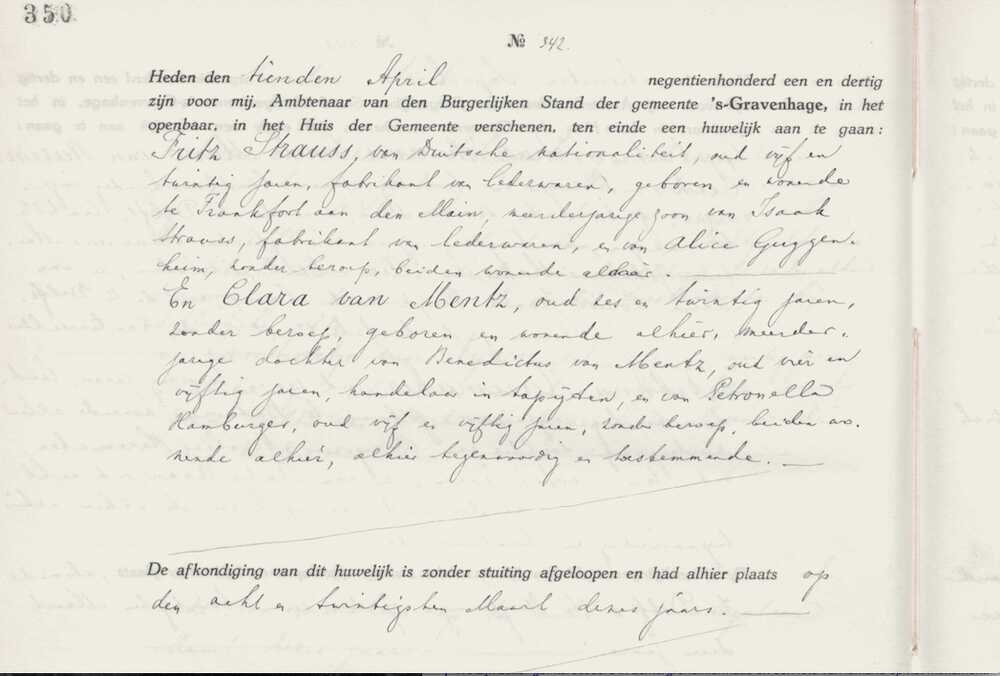 350
№ 342.
Heden den tienden April negentienhonderd een en dertig
zijn voor mij, Ambtenaar van den Burgerlijken Stand der gemeente 's-Gravenhage, in het
openbaar, in het Huis der Gemeente verschenen, ten einde een huwelijk aan te gaan:
Fritz Strauss, van Duitsche nationaliteit, oud vijf en
twintig jaren, fabrikant van lederwaren, geboren en wonende
te Frankfort aan den Main, meerderjarige zoon van Isaak
Strauss, fabrikant van lederwaren, en van Alice Guggen-
heim, zonder beroep, beiden wonende aldaar.
En Clara van Mentz, oud zes en twintig jaren,
zonder beroep, geboren en wonende alhier, meerder-
jarige dochter van Benedictus van Mentz, oud vier en
vijftig jaren, handelaar in tapijten, en van Petronella
Hamburger, oud vijf en vijftig jaren, zonder beroep, beiden wo-
nende alhier, alhier tegenwoordig en toestemmende.
De afkondiging van dit huwelijk is zonder stuiting afgeloopen en had alhier plaats op
den acht en twintigsten Maart dezes jaars.